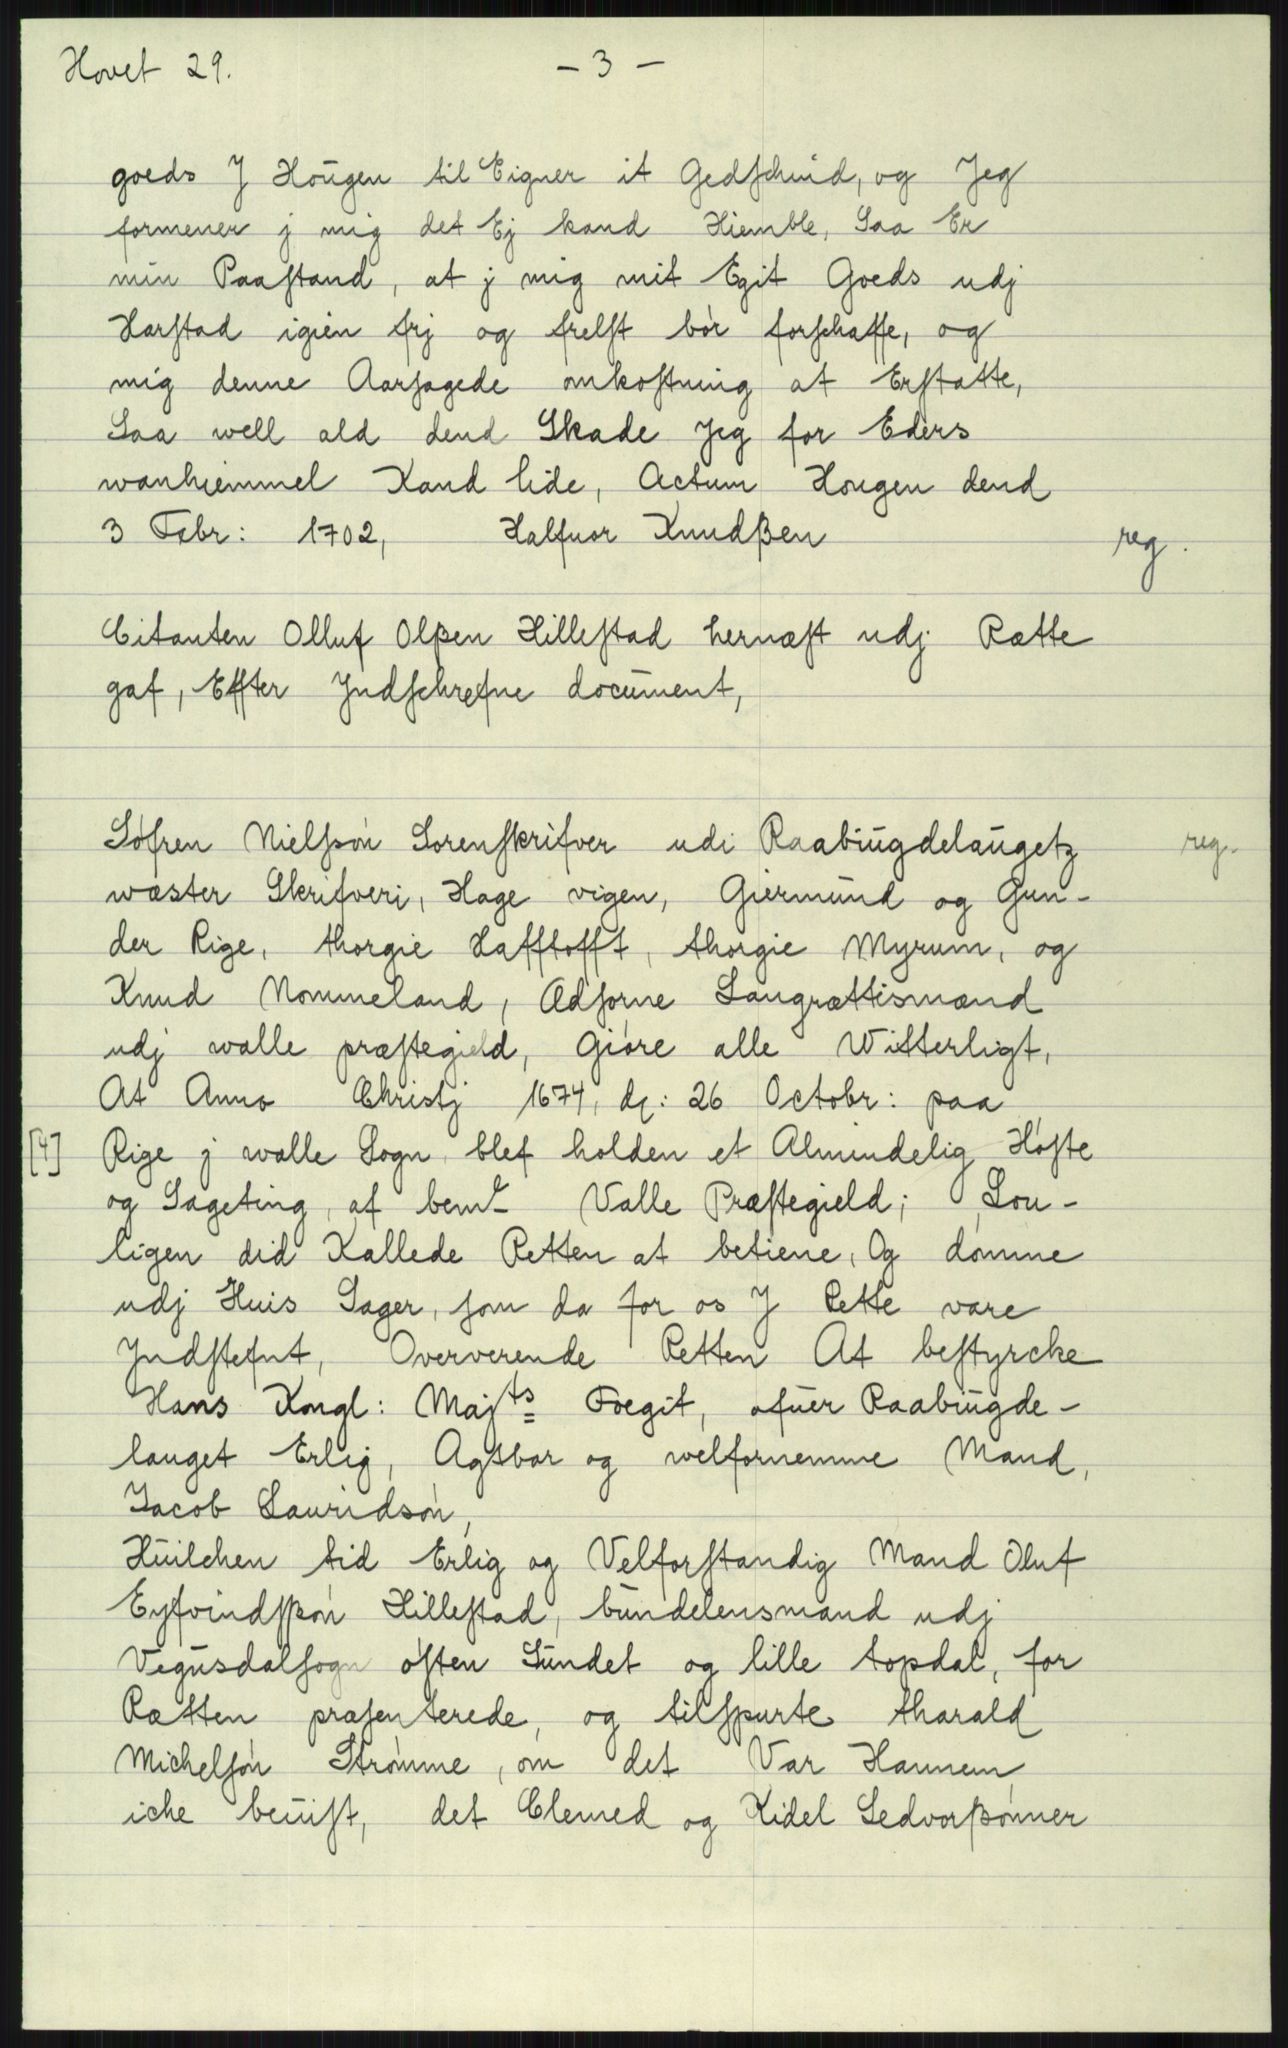 Hovet 29.
- 3 -
goeds J Hougen til Eigner it Gedschind, og Jeg
formener j mig det Ej kand Hiemble, Saa Er
min Paastand, at j mig mit Egit Goeds udj
Harstad igien frj og frelst bör forschaffe, og
mig denne Aarsagede omkostning at Erstatte,
Saa well ald dend Skade Jeg for Eders
wanhiemmel Kand lide, Actum Hougen dend
3 Febr: 1702, Halfuor Knudßen
reg.
Citanten Olluf Olßen Hillestad hernæst udj Rætte
gaf, Effter Jndschrefne document,
Söfren Nielssön Sorenskrifver udi Raabiugdelaugetz
reg.
wæster Skrifveri, Hage vigen, Giermund og Gun-
der Rige, thorgie Hafftofft, thorgie Myrum, og
Knud Nommeland, Ædsorne Laugrættismænd
udj walle præstegield, Giöre alle Witterligt,
At Anno Christj 1674, dq: 26 Octobr: paa
[4] Rige j walle Sogn blef holden et Almindelig Höste
og Sageting, af bemte Valle Præstegield; Lou-
ligen did Kallede Retten at betiene, Og dömme
udj Huis Sager, som da for os J Rette vare
Jndstefnt, Oververende Retten At bestyrcke
Hans Kongl: Majts Foegit, ofuer Raabiugde-
lauget Erlig, Agtbar og welfornemme Mand,
Jacob Lauridsön,
Huilchen tid Erlig og Velforstandig Mand Oluf
Eyfvindsßön Hillestad, bundelensmand udj
Vegusdalsogn östen Sundet og lille topdal, for
Rætten præsenterede, og tilspurte tharald
Michelsön Strömme, om det Var Hannem
iche beuist, det Clemed og Kidel Sedvorßönner